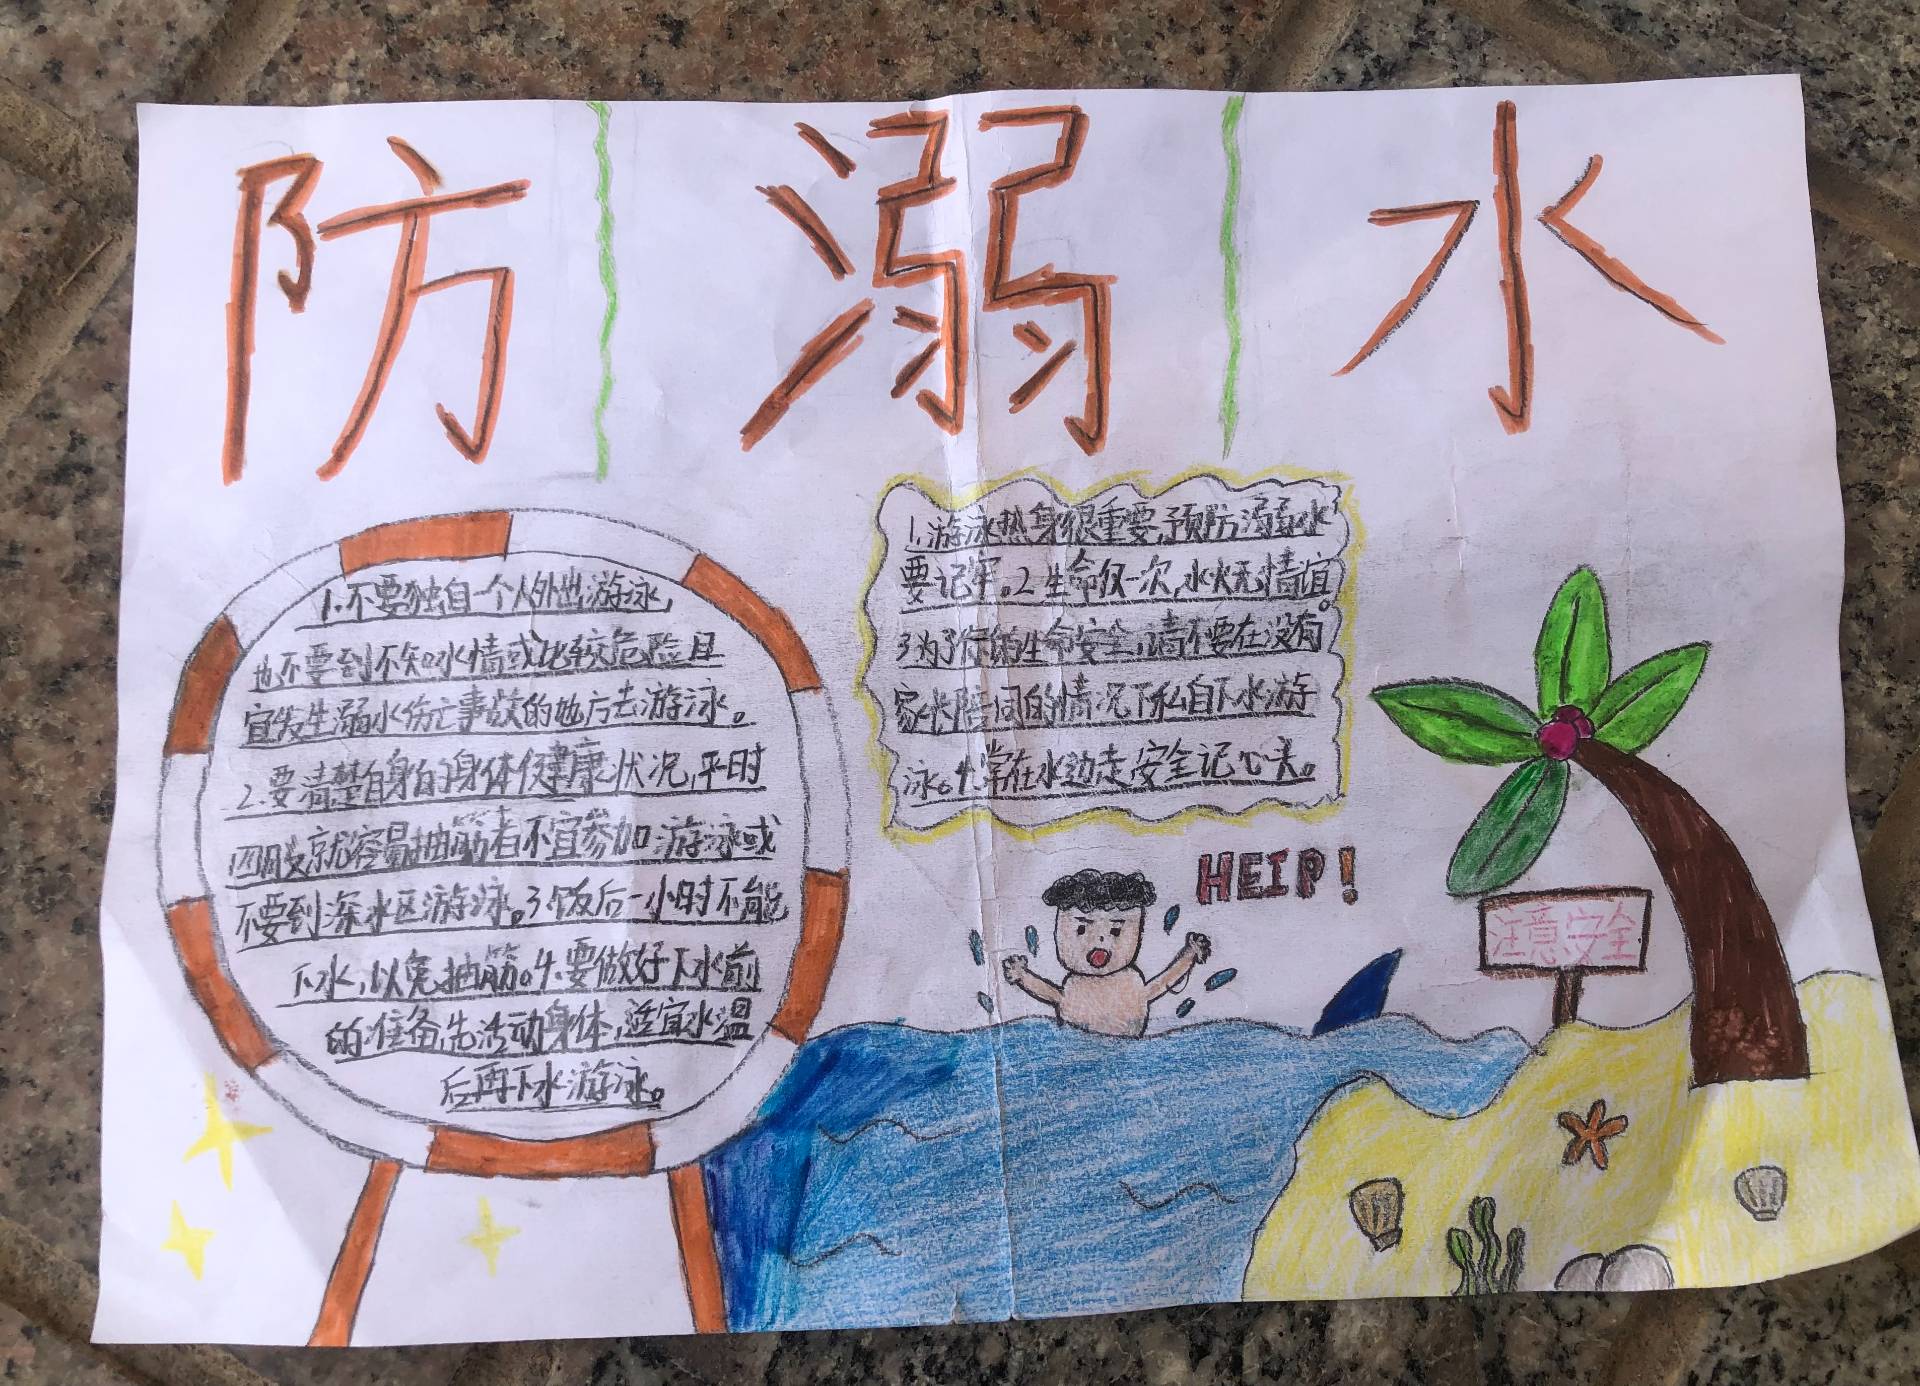 防溺水
1.不要独自一个人外出游泳,
也不要到不知水情或比较危险且
宜发生溺水伤亡事故的地方去游泳。
2.要清楚自身的身体健康状况,平时
四肢就容易抽筋者不宜参加游泳或
不要到深水区游泳。3.饭后一小时不能
下水,以免抽筋。4.要做好下水前
的准备,先活动身体,适宜水温
后再下水游泳。
1.游泳热身很重要,预防溺水
要记牢。2生命仅一次,水火无情谊。
3为了你的生命安全,请不要在没有
家长陪同的情况下私自下水游
泳。4.常在水边走,安全记心头。
HEIP!
注意安全